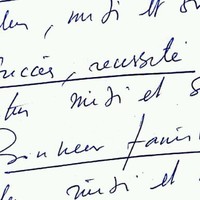 midi et s
Succès, reussite
midi et s
Bonheur fami
midi et